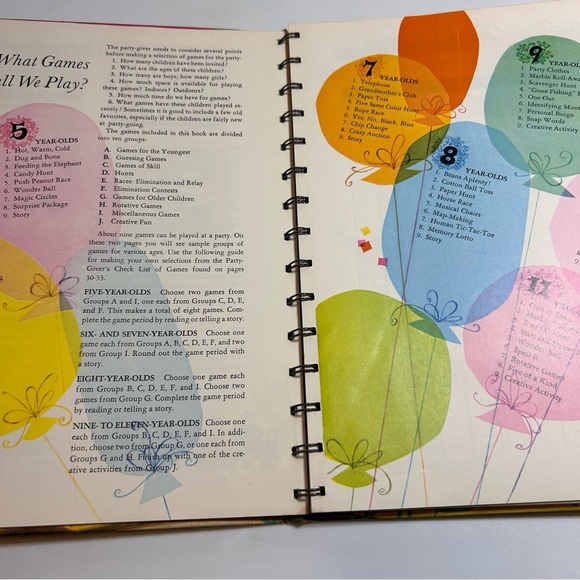 What Games
all We Play?
5
YEAR-OLDS
1. Hot, Warm, Cold
2. Dog and Bone
3. Feeding the Elephant
4. Candy Hunt
5. Push Peanut Race
6. Wonder Ball
7. Magic Circles
8. Surprise Package
9. Story
The party-giver needs to consider several points
before making a selection of games for the party:
1. How many children have been invited?
2. What are the ages of these children?
3. How many are boys; how many girls?
4. How much space is available for playing
these games? Indoors? Outdoors?
5. How much time do we have for games?
6. What games have these children played re-
cently? Sometimes it is good to include a few old
favorites, especially if the children are fairly new
at party-going.
The games included in this book are divided
into ten groups:
A. Games for the Youngest
B. Guessing Games
C. Games of Skill
D. Hunts
E. Races: Elimination and Relay
F. Elimination Contests
G. Games for Older Children
H. Rotative Games
I. Miscellaneous Games
J. Creative Fun
About nine games can be played at a party. On
these two pages you will see sample groups of
games for various ages. Use the following guide
for making your own selections from the Party-
Giver's Check List of Games found on pages
30-33.
FIVE-YEAR-OLDS Choose two games from
Groups A and I, one each from Groups C, D, E,
and F. This makes a total of eight games. Com-
plete the game period by reading or telling a story.
SIX- AND SEVEN-YEAR-OLDS Choose one
game each from Groups A, B, C, D, E, F, and two
from Group I. Round out the game period with
a story.
EIGHT-YEAR-OLDS Choose one game each
from Groups B, C, D, E, F, and I. Choose two
games from Group G. Complete the game period
by reading or telling a story.
NINE- TO ELEVEN-YEAR-OLDS Choose one
each from Groups B, C, D, E, F, and I. In addi-
tion, choose two from Group G, or one each from
Groups G and H. Finish up with one of the cre-
ative activities from Group J.
7
YEAR-OLDS
1. Telephone
2. Grandmother's Club
3. Paper Toss
4. Five Same Color Hunt
5. Rope Race
6. Yes, No, Black, Blue
7. Chip Change
8. Crazy Auction
9. Story
8
YEAR-OLDS
1. Beans Aplenty!
2. Cotton Ball Toss
3. Paper Hunt
4. Horse Race
5. Musical Chairs
6. Map-Making
7. Human Tic-Tac-Toe
8. Memory Lotto
9. Story
9
YEAR-OLDS
1. Party Clothes
2. Marble Roll-Away
3. Scavenger Hunt
4. "Gone Fishing"
5. Goat Out
6. Identifying
7. Personal Bingo
8. Snap Words
9. Creative Activity
11
YEAR-OLDS
6. Spell It
7. Rotative Games
8. Five of a Kind
9. Creative Activity